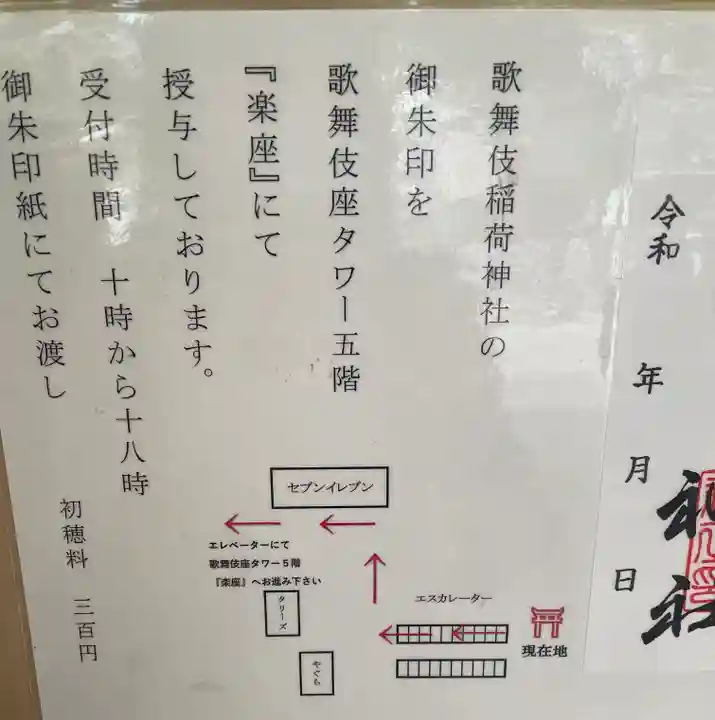 令和
年
月
日
歌舞伎稲荷神社の
御朱印を
歌舞伎座タワー五階
『楽座』にて
授与しております。
受付時間 十時から十八時
御朱印紙にてお渡し
初穂料 三百円
セブンイレブン
エレベーターにて
歌舞伎座タワー5階
『楽座』へお進み下さい
タリーズ
やぐら
エスカレーター
現在地